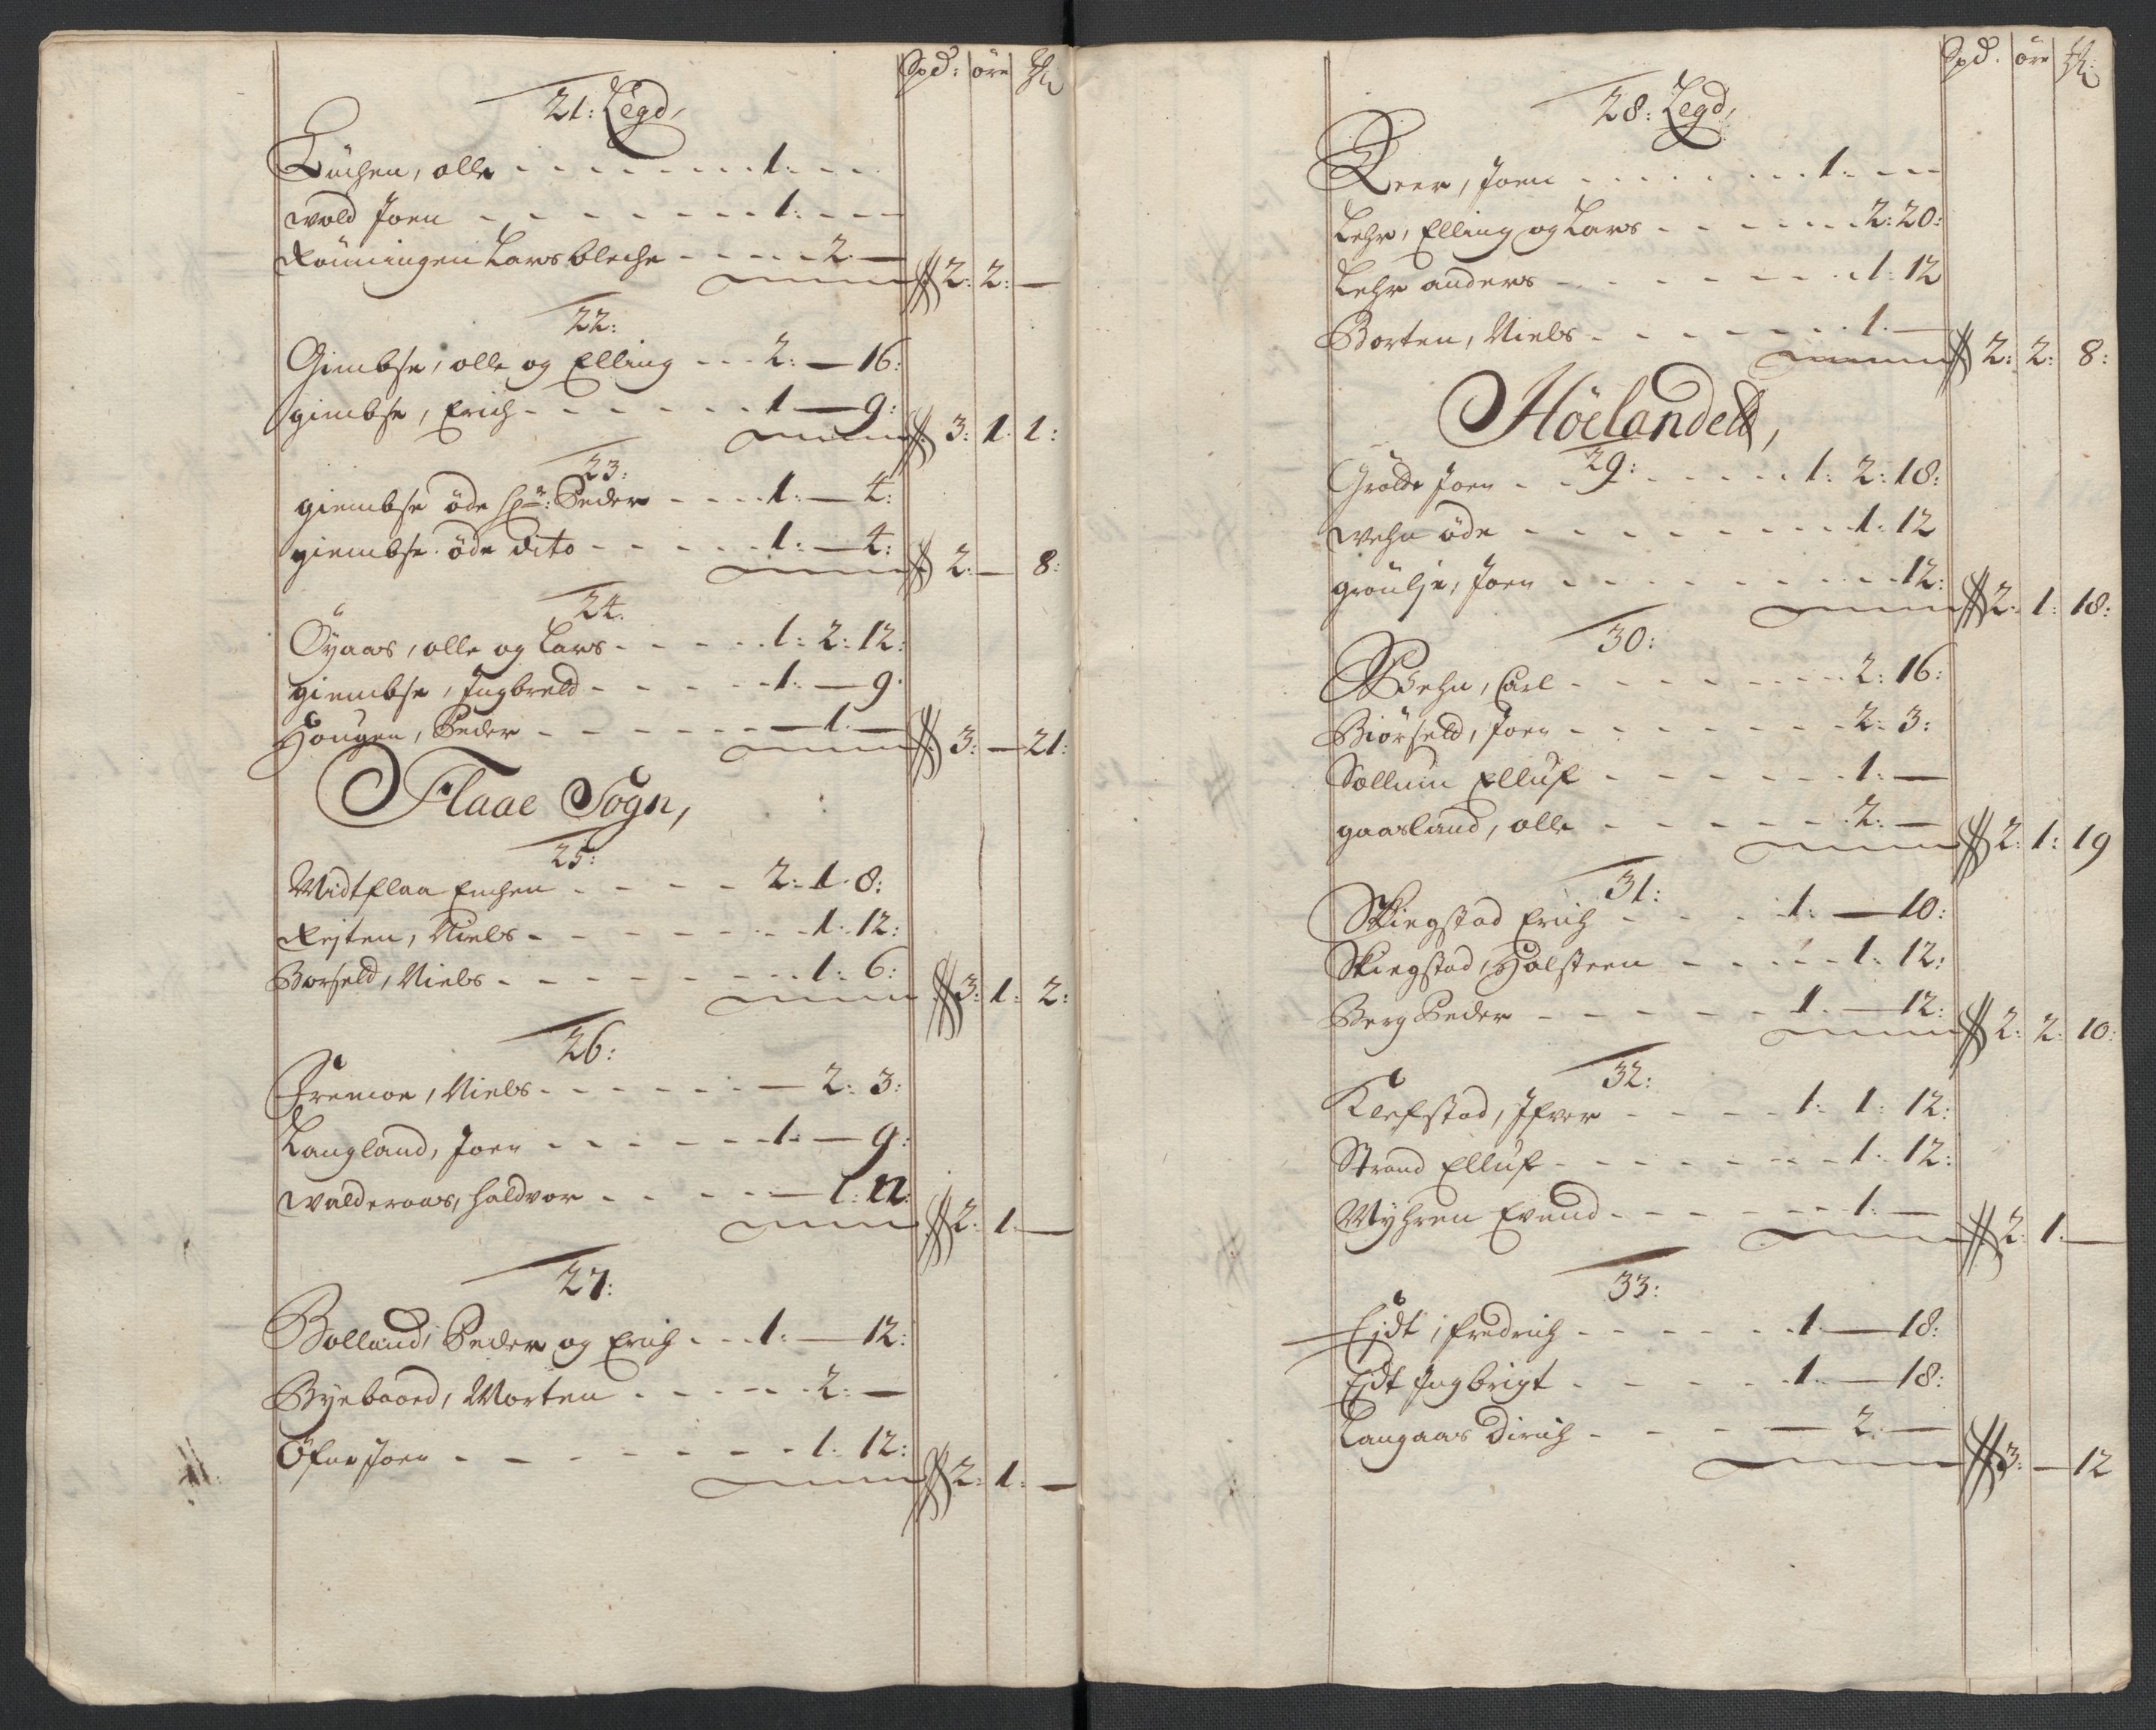 Spd: öre
21: Legd,
Kuchen, olle - - - 1: - - -
wold Joen - - - 1: - - -
Rönningen Lars bleche - - - 2. —
2: 2: —
22:
Gimbse, olle og Elling - - 2: — 16:
gimbse, Erich - - - 1 — 9:
3: 1. 1:
23:
giembse öde Hr: Peder - - - 1: — 4:
giembse öde dito - - - 1: — 4:
2: — 8:
24.
Öyaas, olle og Lars - - - 1: 2: 12:
giembse, Ingbreld - - - 1. — 9.
Hougen, Peder - - - 1. —
3: — 21:
Flaae Sogn,
25:
Midtflaa Enchen - - - 2: 1. 8:
Rejten, Niels - - - 1. 12:
Borseld, Niels - - - 1: 6:
3: 1: 2:
26:
Fremoe, Niels - - - 2: 3:
Langland, Joen - - - 1. — 9:
walderaas, haldvor - - - 1: 12:
2. 1. —
27:
Bolland, Peder og Erich - - - 1: — 12:
Byebaard, Morten - - - 2: —
Öfne Joen - - - 1. 12:
2: 1: —
Spd. öre
28: Legd,
Leer, Joen - - - 1. - - -
Lehr, Elling og Lars - - - 2: 20:
Lehr anders - - - 1: 12
Borten, Niels - - - 1. —
2: 2: 8:
Höelandet,
29:
Grölde Joen - - - 1: 2: 18:
wehn öde - - - 1: 12
gröulje, Joen - - - 12:
2. 1: 18:
30:
Wehn, Carl - - - 2: 16:
Biörseld, Joen - - - 2: 3:
Sollum Elluf - - - 1. —
gaasland, olle - - - 2: —
2: 1: 19
31:
Skiegstad Erich - - - 1: — 10:
Skiegstad, Halsteen - - - 1. 12:
Berg Peder - - - 1. — 12:
2: 2. 10:
32:
Klefstad, Ifver - - - 1: 1: 12:
Strand Elluf - - - 1. 12:
Myhren Evend - - - 1. —
2. 1. —
33:
Eidt, fredrich - - - 1 — 18:
Eidt Ingbrigt - - - 1. — 18:
Langaas Dirich - - - 2. —
3: — 12